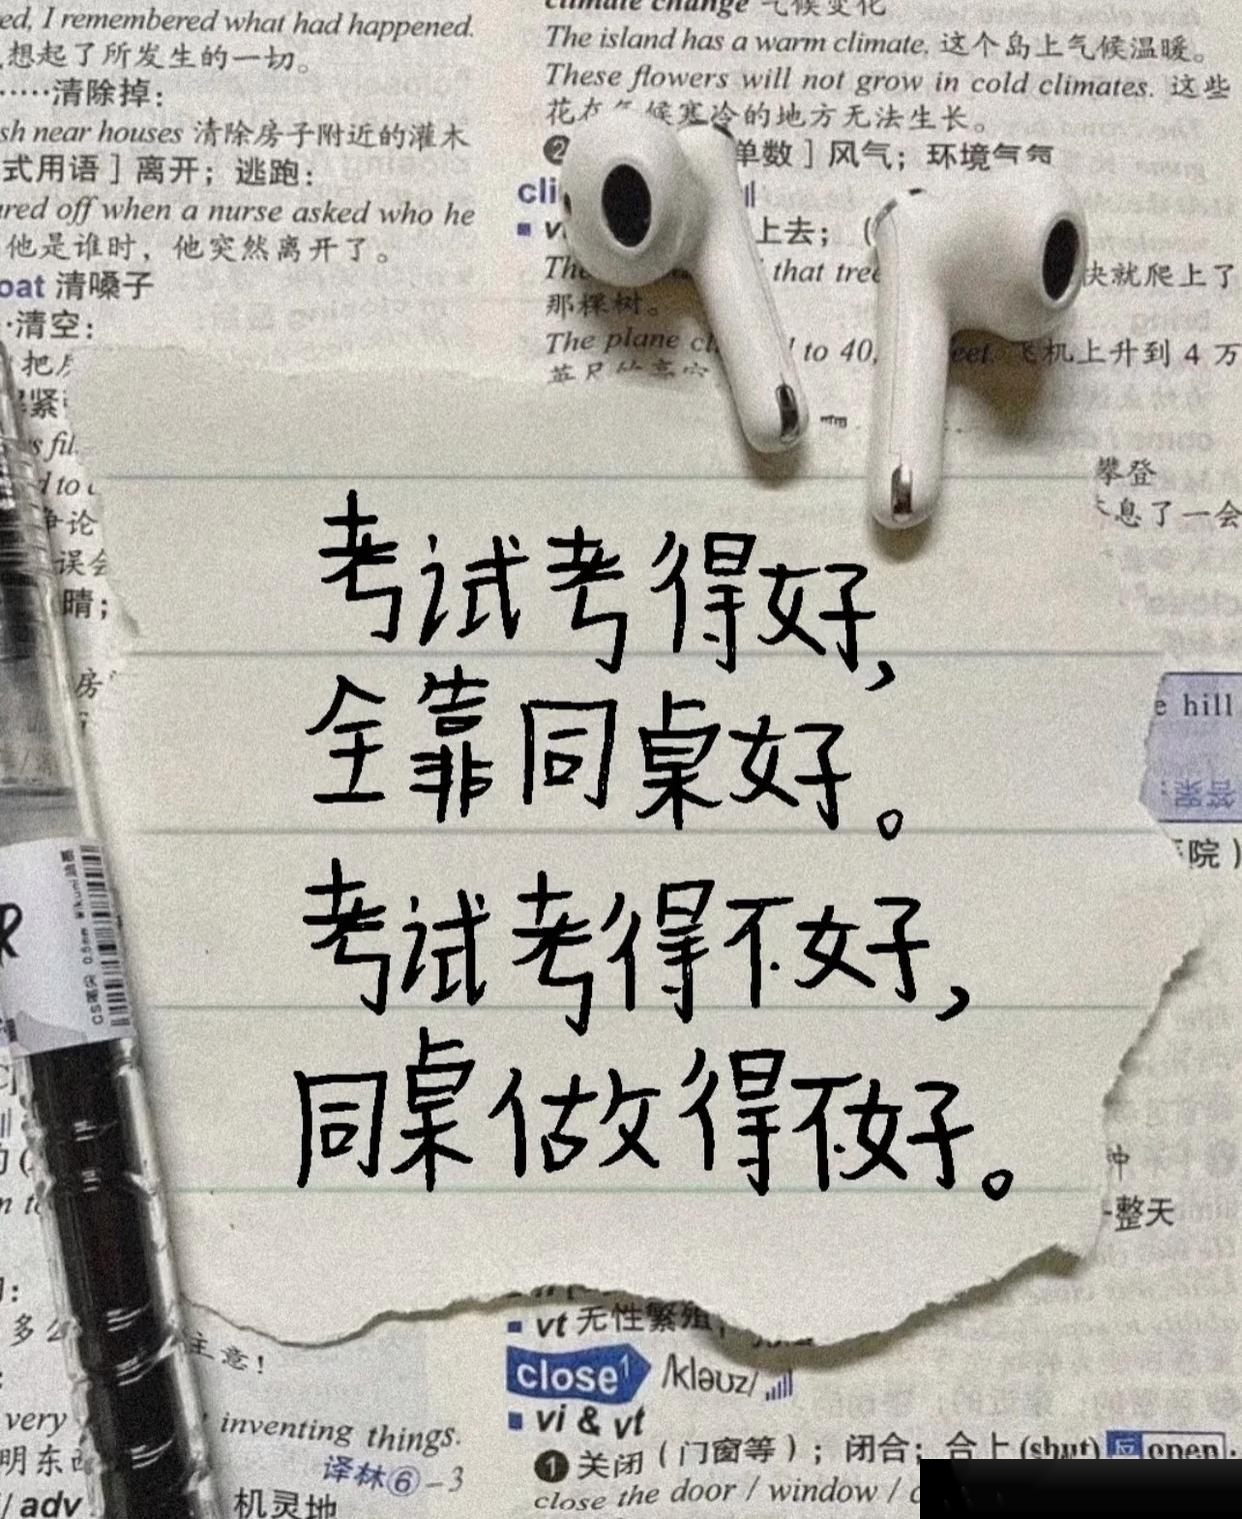 ed, I remembered what had happened.
想起了所发生的一切。
······清除掉：
sh near houses 清除房子附近的灌木
式用语］离开；逃跑：
ared off when a nurse asked who he
他是谁时，他突然离开了。
oat 清嗓子
·清空：
把
争论
误会
晴；
房
climate change 气候变化
The island has a warm climate. 这个岛上气候温暖。
These flowers will not grow in cold climates. 这些
花在气候寒冷的地方无法生长。
❷ 单数］风气；环境气氛
cli
■ v
上去；（
The that tree 快就爬上了
那棵树。
The plane cl to 40, feet. 飞机上升到 4 万
英尺的高空
攀登
息了一会
考试考得好，
全靠同桌好。
考试考得不好，
同桌做得不好。
e hill
答案：
院）
CS笔尖 0.5mm
R
钟
整天
多么
主意！
very inventing things.
明东西
译林⑥-3
/ adv 机灵地
■ vt 无性繁殖
close¹ /kləʊz/
■ vi & vt
❶ 关闭（门窗等）；闭合；合上 (shut) 反 open：
close the door / window /